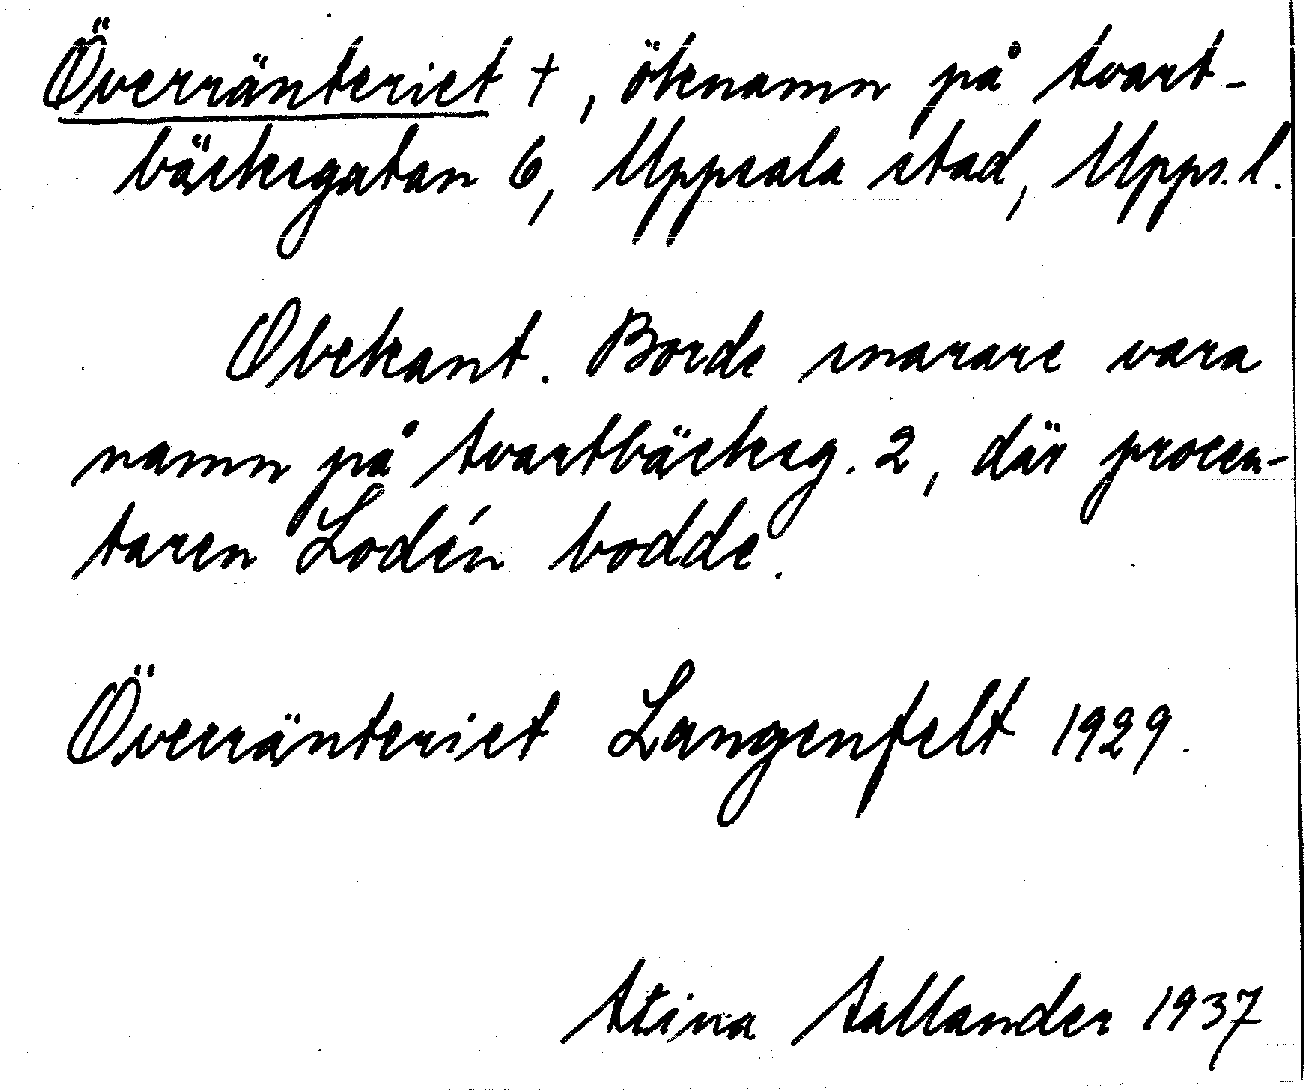 Överränteriet †, öknamn på Svart-
bäcksgatan 6, Uppsala stad, Upps. l.
Obekant. Borde snarare vara
namn på Svartbäcksg. 2, där procen-
taren Lodén bodde.
Överränteriet Langenfelt 1929.
Stina Sallander 1937